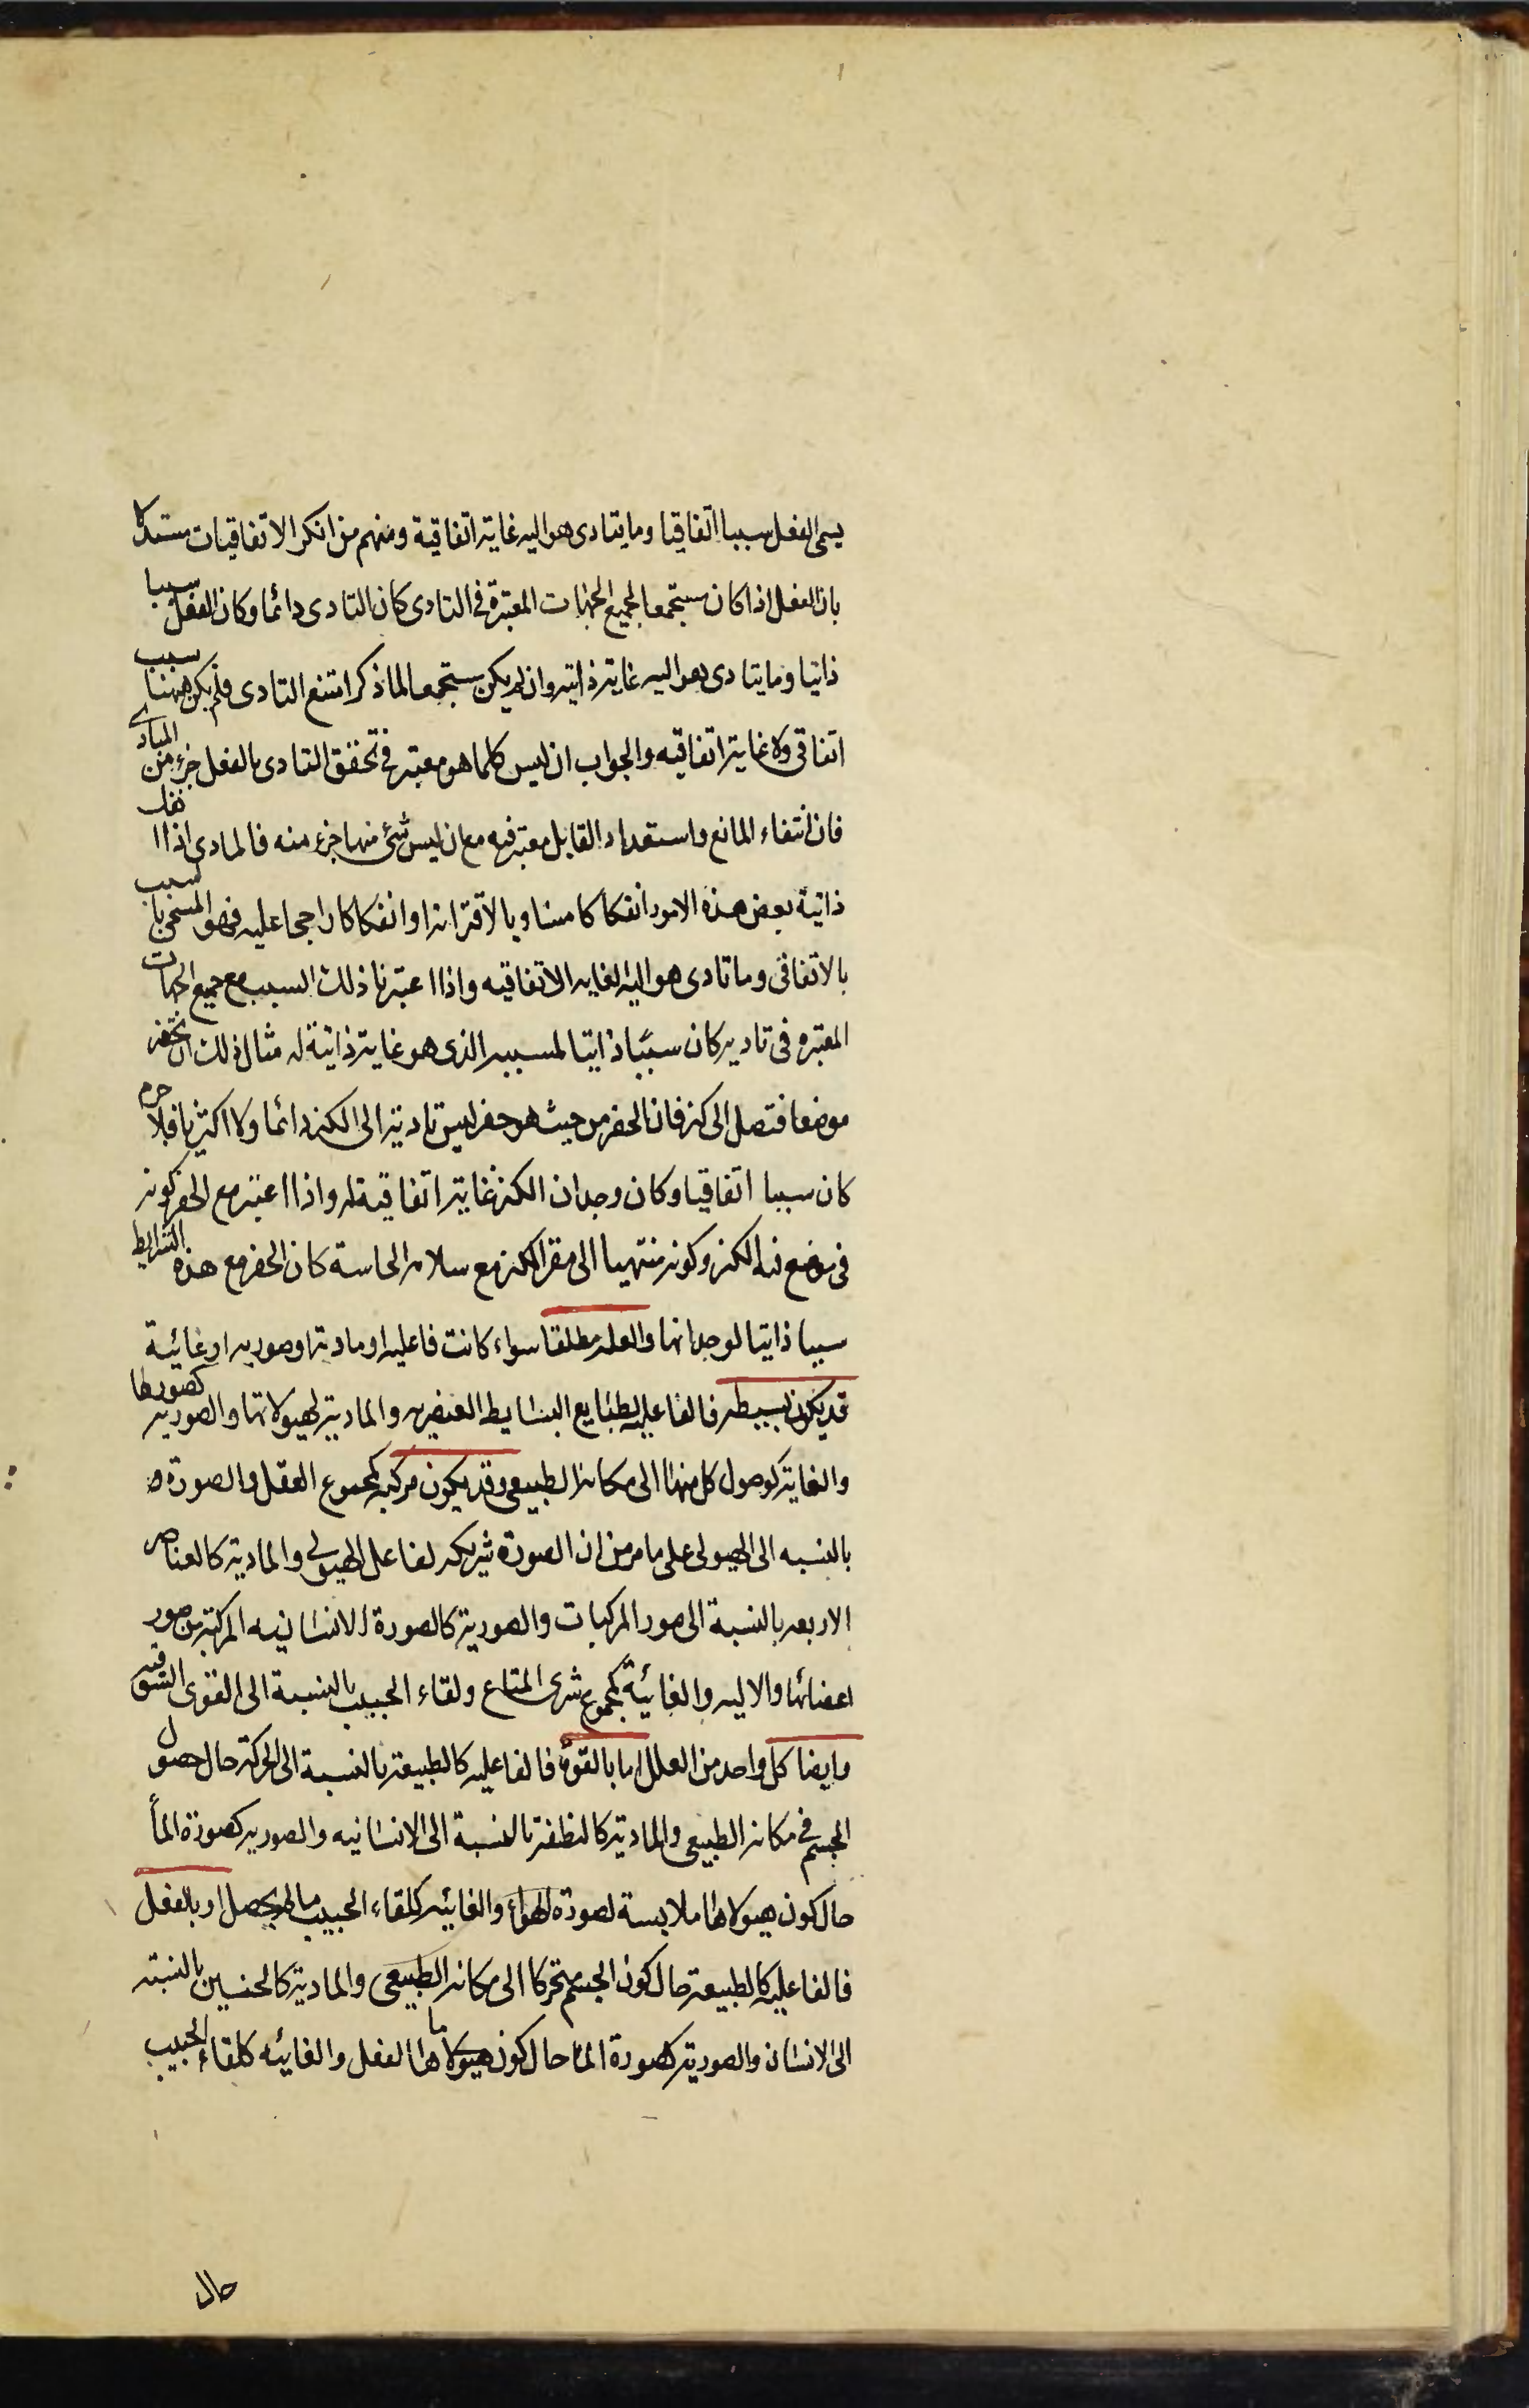 يسمى الفعل سببا اتفاقيا وما يتادى هو اليه غاية اتفاقية ومنهم من انكر الاتفاقيات مستدلا
بان الفعل اذا كان مستجمعا لجميع الجهات المعتبرة في التادى كان التادى دائما وكان الفعل سببا
ذاتيا وما يتادى هو اليه غاية ذاتيه وان لم يكن مستجمعا لما ذكر امتنع التادى فلم يكن ههنا سبب
اتفاقى ولا غاية اتفاقيه والجواب ان ليس كلما هو معتبر في تحقق التادى بالفعل جزء من المبادى
فان انتفاء المانع واستعداد القابل معتبر فيه مع ان ليس شئ منهما جزء منه فالمادى اذا انفك
ذاتية بعض هذه الامور انفكاكا مساويا لاقترانه او انفكاكا راجحا عليه فهو المسمى بالسبب
بالاتفاقى وما تادى هو اليه الغايه الاتفاقيه واذا اعتبرنا ذلك السبب مع جميع الجهات
المعتبره فى تاديه كان سببا ذاتيا لمسببه الذى هو غاية ذاتية له مثال ذلك ان تحفر
موضعا فتصل الى كنز فان الحفر من حيث هو حفر ليس تاديته الى الكنز دائما ولا اكثريا فلا جرم
كان سببا اتفاقيا وكان وجدان الكنز غاية اتفاقية له واذا اعتبر مع الحفر كونه
فى موضع فيه الكنز وكونه منتهيا الى مقر الكنز مع سلامه الحاسة كان الحفر مع هذه الشرايط
سببا ذاتيا لوجدانها والعله مطلقا سواء كانت فاعليه او مادية او صوريه او غائية
قد يكون بسيطه فالفاعليه لطبايع البسايط العنصريه والماديه لهيولاتها والصوريه كصورها
والغاية كوصول كل منها الى مكانه الطبيعى وقد يكون مركبه كمجموع العقل والصورة
بالنسبه الى الهيولى على ما مر من ان الصورة شريكه لفاعل الهيولى والمادية كالعناصر
الاربعه بالنسبة الى صور المركبات والصورية كالصورة الانسانيه المركبة من صور
اعضائها والاليه والغائية كمجموع شرى المتاع ولقاء الحبيب بالنسبة الى القوى الشوقيه
وايضا كل واحد من العلل اما بالقوة فالفاعليه كالطبيعة بالنسبة الى الحركة حال حصول
الجسم في مكانه الطبيعى والمادية كالنطفة بالنسبة الى الانسانيه والصوريه كصورة الماء
حال كون هيولاها ملابسة لصورة الهواء والغائيه كلقاء الحبيب ما لم يحصل او بالفعل
فالفاعليه كالطبيعة حال كون الجسم متحركا الى مكانه الطبيعى والمادية كالجنين بالنسبة
الى الانسان والصورية كصورة الماء حال كون هيولاها ما بالفعل والغائيه كلقاء الحبيب
حال